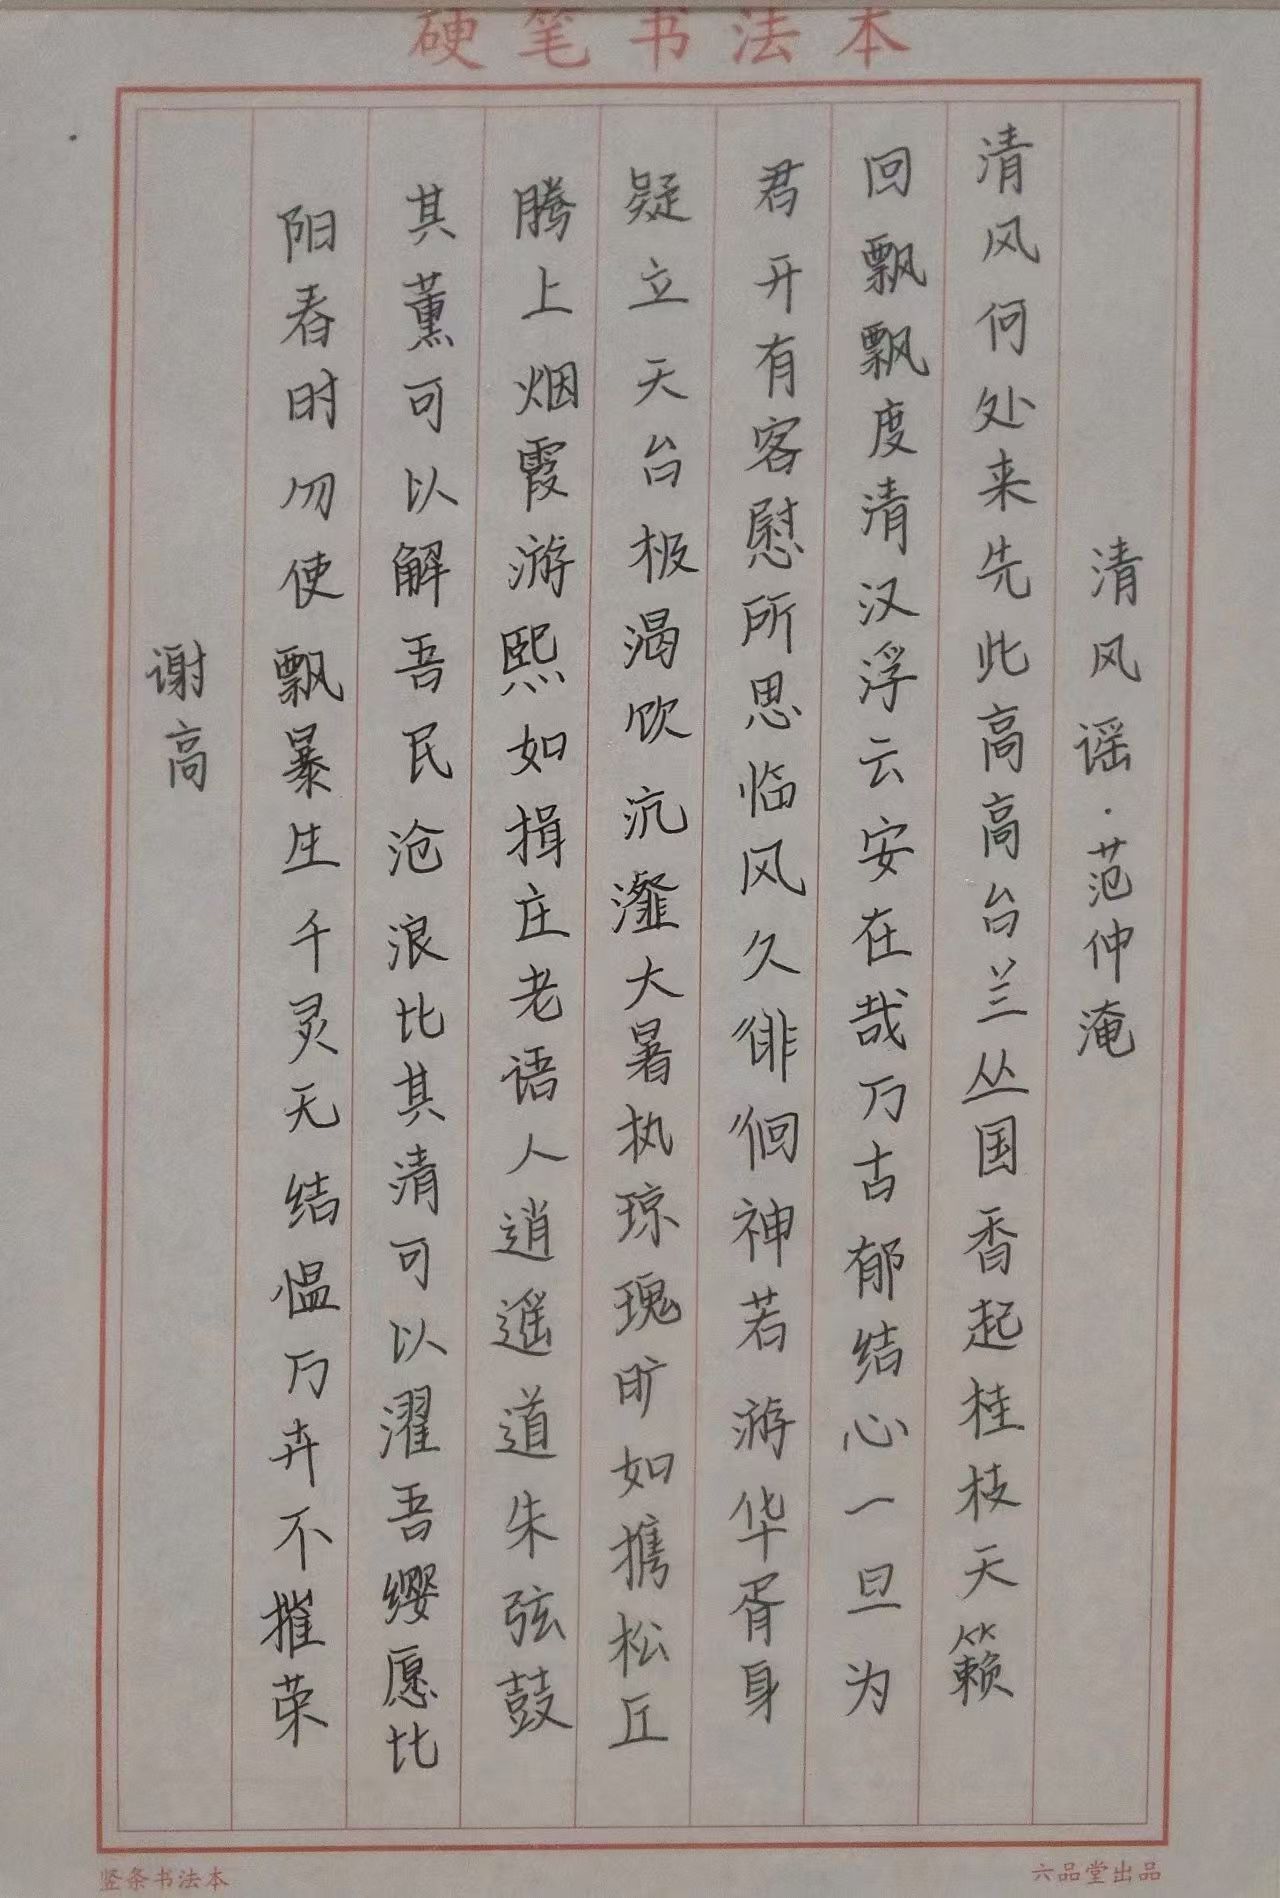 硬笔书法本
清风谣·范仲淹
清风何处来先此高高台兰丛国香起桂枝天籁
回飘飘度清汉浮云安在哉万古郁结心一旦为
君开有客慰所思临风久徘徊神若游华胥身
疑立天台极渴饮沆瀣大暑执琼瑰旷如携松丘
腾上烟霞游熙如揖庄老语人逍遥道朱弦鼓
其薰可以解吾民沧浪比其清可以濯吾缨愿比
阳春时勿使飘暴生千灵无结愠万卉不摧荣
谢高
竖条书法本
六品堂出品